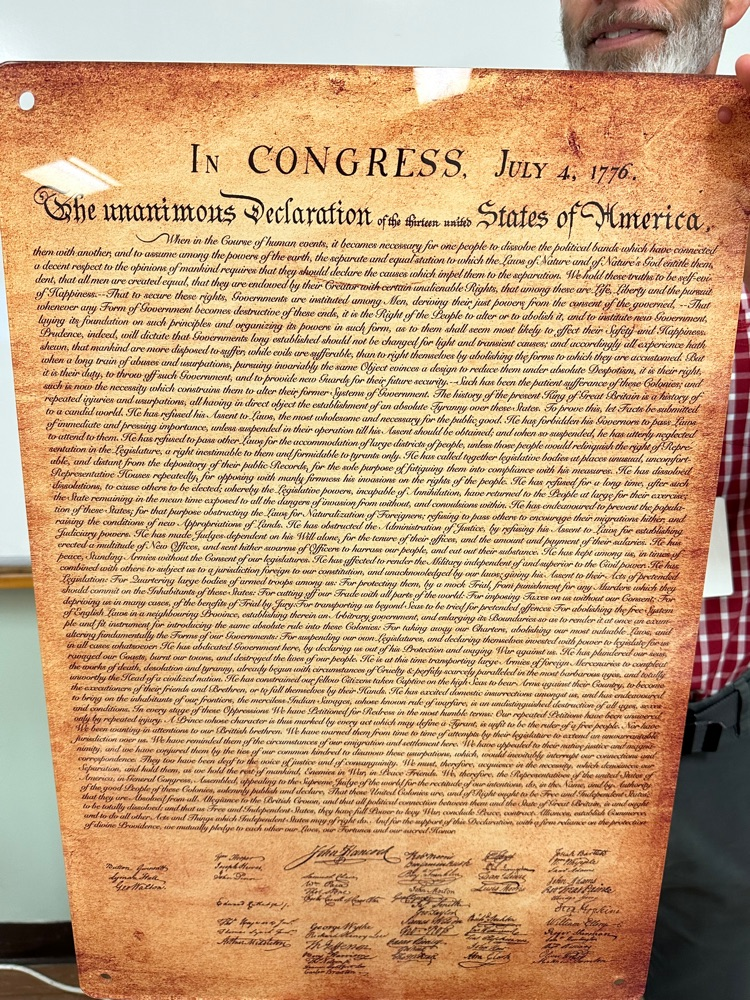 IN CONGRESS, JULY 4, 1776.
The unanimous Declaration of the thirteen united States of America,
When in the Course of human events, it becomes necessary for one people to dissolve the political bands which have connected
them with another, and to assume among the powers of the earth, the separate and equal station to which the Laws of Nature and of Nature's God entitle them,
a decent respect to the opinions of mankind requires that they should declare the causes which impel them to the separation. We hold these truths to be self-evi
dent, that all men are created equal, that they are endowed by their Creator with certain unalienable Rights, that among these are Life, Liberty and the pursuit
of Happiness.--That to secure these rights, Governments are instituted among Men, deriving their just powers from the consent of the governed, --That
whenever any Form of Government becomes destructive of these ends, it is the Right of the People to alter or to abolish it, and to institute new Government,
laying its foundation on such principles and organizing its powers in such form, as to them shall seem most likely to effect their Safety and Happiness.
Prudence, indeed, will dictate that Governments long established should not be changed for light and transient causes; and accordingly all experience hath
shewn, that mankind are more disposed to suffer, while evils are sufferable, than to right themselves by abolishing the forms to which they are accustomed. But
when a long train of abuses and usurpations, pursuing invariably the same Object evinces a design to reduce them under absolute Despotism, it is their right,
it is their duty, to throw off such Government, and to provide new Guards for their future security.--Such has been the patient sufferance of these Colonies; and
such is now the necessity which constrains them to alter their former Systems of Government. The history of the present King of Great Britain is a history of
repeated injuries and usurpations, all having in direct object the establishment of an absolute Tyranny over these States. To prove this, let Facts be submitted
to a candid world. He has refused his Assent to Laws, the most wholesome and necessary for the public good. He has forbidden his Governors to pass Laws
of immediate and pressing importance, unless suspended in their operation till his Assent should be obtained; and when so suspended, he has utterly neglected
to attend to them. He has refused to pass other Laws for the accommodation of large districts of people, unless those people would relinquish the right of Repre-
sentation in the Legislature, a right inestimable to them and formidable to tyrants only. He has called together legislative bodies at places unusual, uncomfort-
able, and distant from the depository of their public Records, for the sole purpose of fatiguing them into compliance with his measures. He has dissolved
Representative Houses repeatedly, for opposing with manly firmness his invasions on the rights of the people. He has refused for a long time, after such
dissolutions, to cause others to be elected; whereby the Legislative powers, incapable of Annihilation, have returned to the People at large for their exercise;
the State remaining in the mean time exposed to all the dangers of invasion from without, and convulsions within. He has endeavoured to prevent the popula-
tion of these States; for that purpose obstructing the Laws for Naturalization of Foreigners; refusing to pass others to encourage their migrations hither, and
raising the conditions of new Appropriations of Lands. He has obstructed the Administration of Justice, by refusing his Assent to Laws for establishing
Judiciary powers. He has made Judges dependent on his Will alone, for the tenure of their offices, and the amount and payment of their salaries. He has
erected a multitude of New Offices, and sent hither swarms of Officers to harrass our people, and eat out their substance. He has kept among us, in times of
peace, Standing Armies without the Consent of our legislatures. He has affected to render the Military independent of and superior to the Civil power. He has
combined with others to subject us to a jurisdiction foreign to our constitution, and unacknowledged by our laws; giving his Assent to their Acts of pretended
Legislation: For Quartering large bodies of armed troops among us: For protecting them, by a mock Trial, from punishment for any Murders which they
should commit on the Inhabitants of these States: For cutting off our Trade with all parts of the world: For imposing Taxes on us without our Consent: For
depriving us in many cases, of the benefits of Trial by Jury: For transporting us beyond Seas to be tried for pretended offences For abolishing the free System
of English Laws in a neighbouring Province, establishing therein an Arbitrary government, and enlarging its Boundaries so as to render it at once an exam-
ple and fit instrument for introducing the same absolute rule into these Colonies: For taking away our Charters, abolishing our most valuable Laws, and
altering fundamentally the Forms of our Governments: For suspending our own Legislatures, and declaring themselves invested with power to legislate for us
in all cases whatsoever. He has abdicated Government here, by declaring us out of his Protection and waging War against us. He has plundered our seas,
ravaged our Coasts, burnt our towns, and destroyed the lives of our people. He is at this time transporting large Armies of foreign Mercenaries to compleat
the works of death, desolation and tyranny, already begun with circumstances of Cruelty & perfidy scarcely paralleled in the most barbarous ages, and totally
unworthy the Head of a civilized nation. He has constrained our fellow Citizens taken Captive on the high Seas to bear Arms against their Country, to become
the executioners of their friends and Brethren, or to fall themselves by their Hands. He has excited domestic insurrections amongst us, and has endeavoured
to bring on the inhabitants of our frontiers, the merciless Indian Savages, whose known rule of warfare, is an undistinguished destruction of all ages, sexes
and conditions. In every stage of these Oppressions We have Petitioned for Redress in the most humble terms: Our repeated Petitions have been answered
only by repeated injury. A Prince whose character is thus marked by every act which may define a Tyrant, is unfit to be the ruler of a free people. Nor have
We been wanting in attentions to our Brittish brethren. We have warned them from time to time of attempts by their legislature to extend an unwarrantable
jurisdiction over us. We have reminded them of the circumstances of our emigration and settlement here. We have appealed to their native justice and magna-
nimity, and we have conjured them by the ties of our common kindred to disavow these usurpations, which, would inevitably interrupt our connections and
correspondence. They too have been deaf to the voice of justice and of consanguinity. We must, therefore, acquiesce in the necessity, which denounces our
Separation, and hold them, as we hold the rest of mankind, Enemies in War, in Peace Friends. We, therefore, the Representatives of the united States of
America, in General Congress, Assembled, appealing to the Supreme Judge of the world for the rectitude of our intentions, do, in the Name, and by Authority
of the good People of these Colonies, solemnly publish and declare, That these United Colonies are, and of Right ought to be Free and Independent States;
that they are Absolved from all Allegiance to the British Crown, and that all political connection between them and the State of Great Britain, is and ought
to be totally dissolved; and that as Free and Independent States, they have full Power to levy War, conclude Peace, contract Alliances, establish Commerce,
and to do all other Acts and Things which Independent States may of right do. And for the support of this Declaration, with a firm reliance on the protection
of divine Providence, we mutually pledge to each other our Lives, our Fortunes and our sacred Honor.
John Hancock
Button Gwinnett
Lyman Hall
Geo Walton.
Wm Hooper
Joseph Hewes,
John Penn
Edward Rutledge
Arthur Middleton
Samuel Chase
Wm Paca
Thos Stone
Charles Carroll of Carrollton
George Wythe
Richard Henry Lee
Th Jefferson
Robt Morris
Benjamin Rush
John Morton
Geo Taylor
James Wilson
Geo. Ross
Caesar Rodney
Lewis Morris
Abra Clark
Josiah Bartlett
Wm Whipple
Saml Adams
John Adams
Robt Treat Paine
Step Hopkins
William Ellery
Roger Sherman